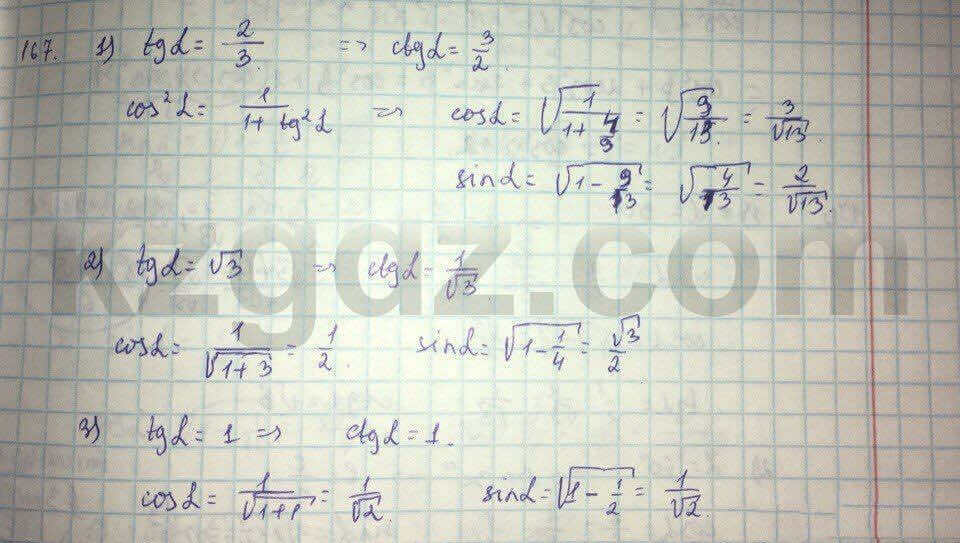 167. 1) tgα = 2/3. => ctgα = 3/2.
cos²α = 1/(1+tg²α) => cosα = √(1/(1+4/9)) = √(9/13). = 3/√13.
sinα = √(1-9/13) = √(4/13) = 2/√13.
2) tgα = √3 => ctgα = 1/√3.
cosα = 1/√(1+3) = 1/2. sinα = √(1-1/4) = √3/2
3) tgα = 1 => ctgα = 1.
cosα = 1/√(1+1) = 1/√2. sinα = √(1-1/2) = 1/√2.
kzgdz.com